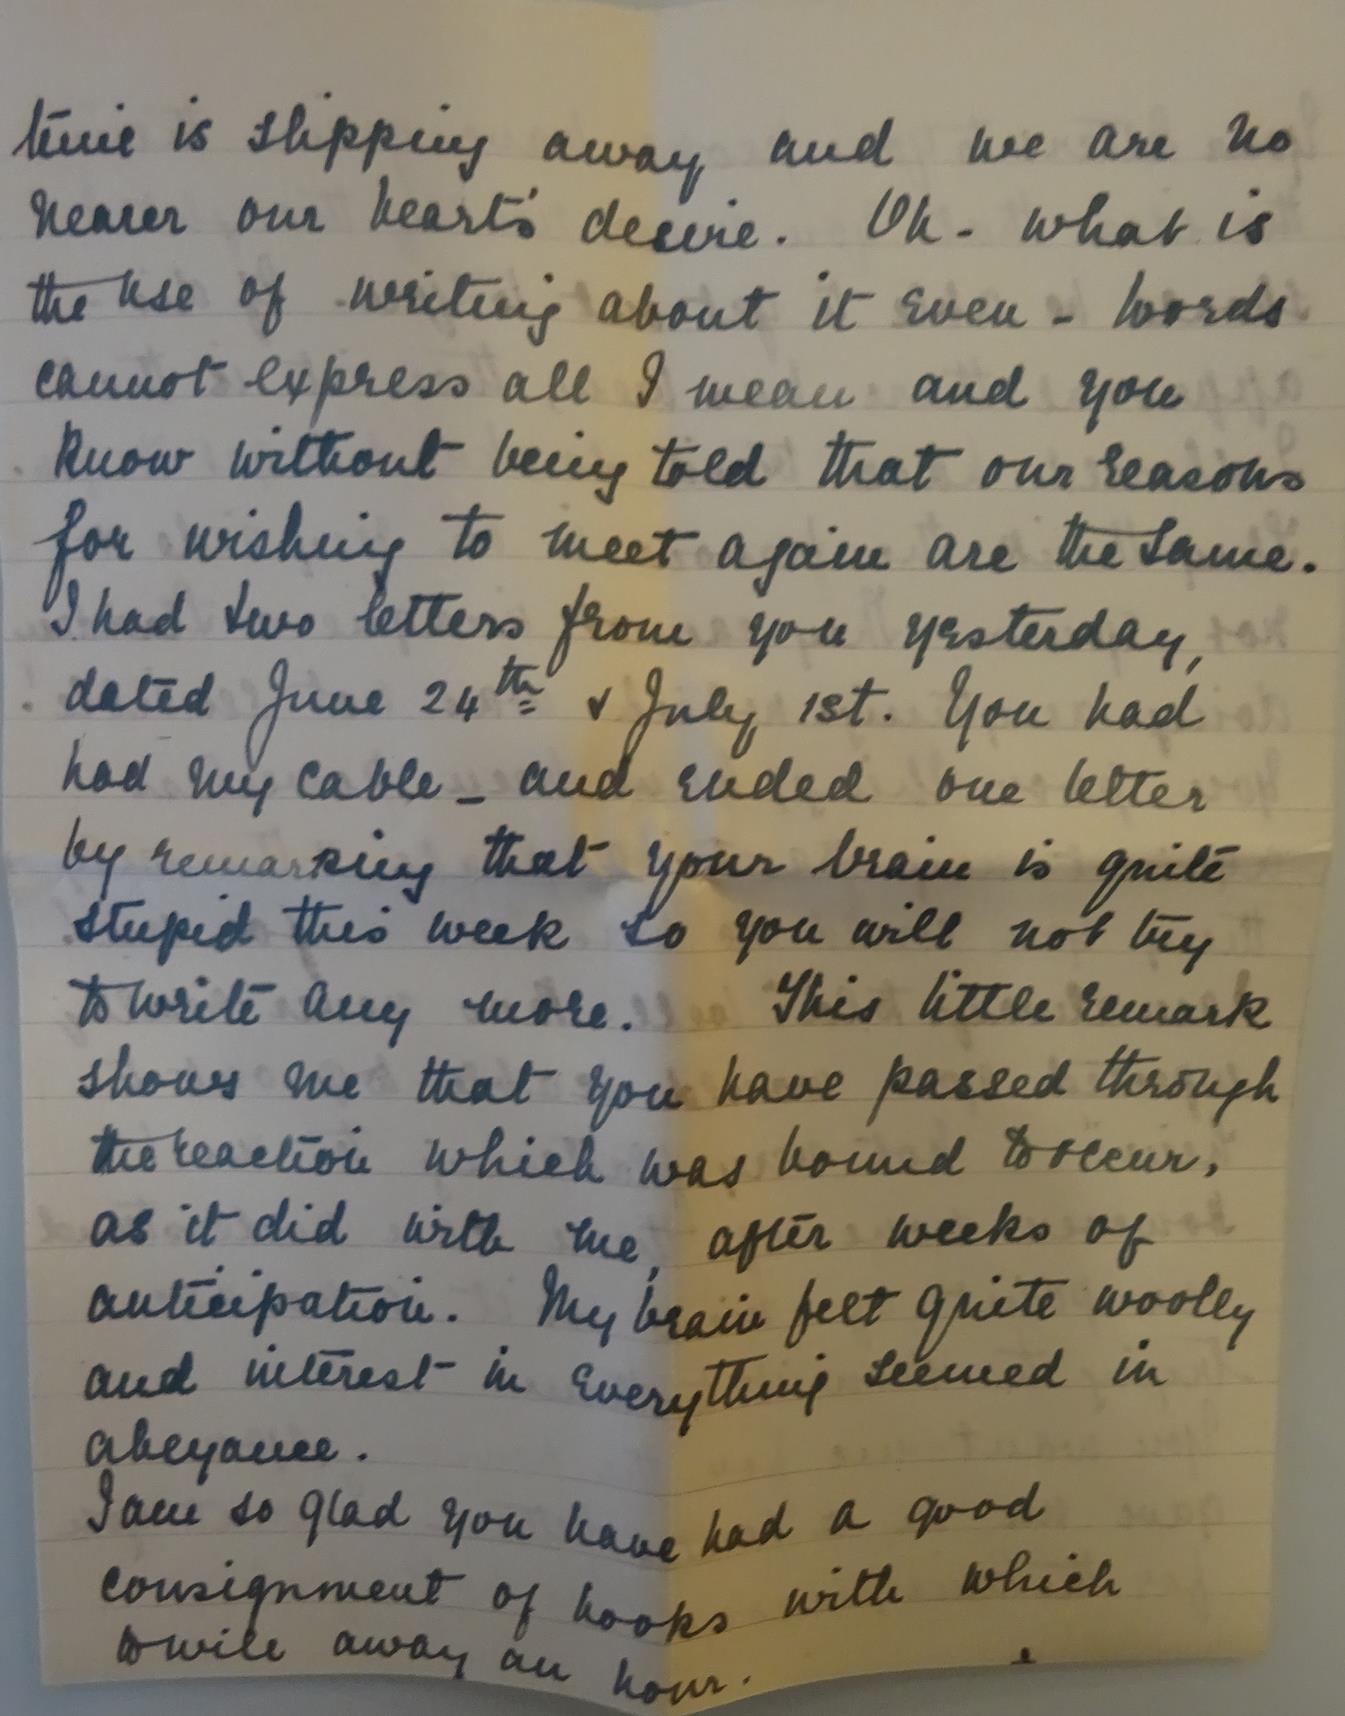 time is slipping away and we are no
nearer our heart's desire. Oh - what is
the use of writing about it even - words
cannot express all I mean and you
know without being told that our reasons
for wishing to meet again are the same.
I had two letters from you yesterday,
dated June 24th & July 1st. You had
had my cable - and ended one letter
by remarking that your brain is quite
stupid this week so you will not try
to write any more. This little remark
shows me that you have passed through
the reaction which was bound to occur,
as it did with me, after weeks of
anticipation. My brain felt quite woolly
and interest in everything seemed in
abeyance.
I am so glad you have had a good
consignment of books with which
to wile away an hour.